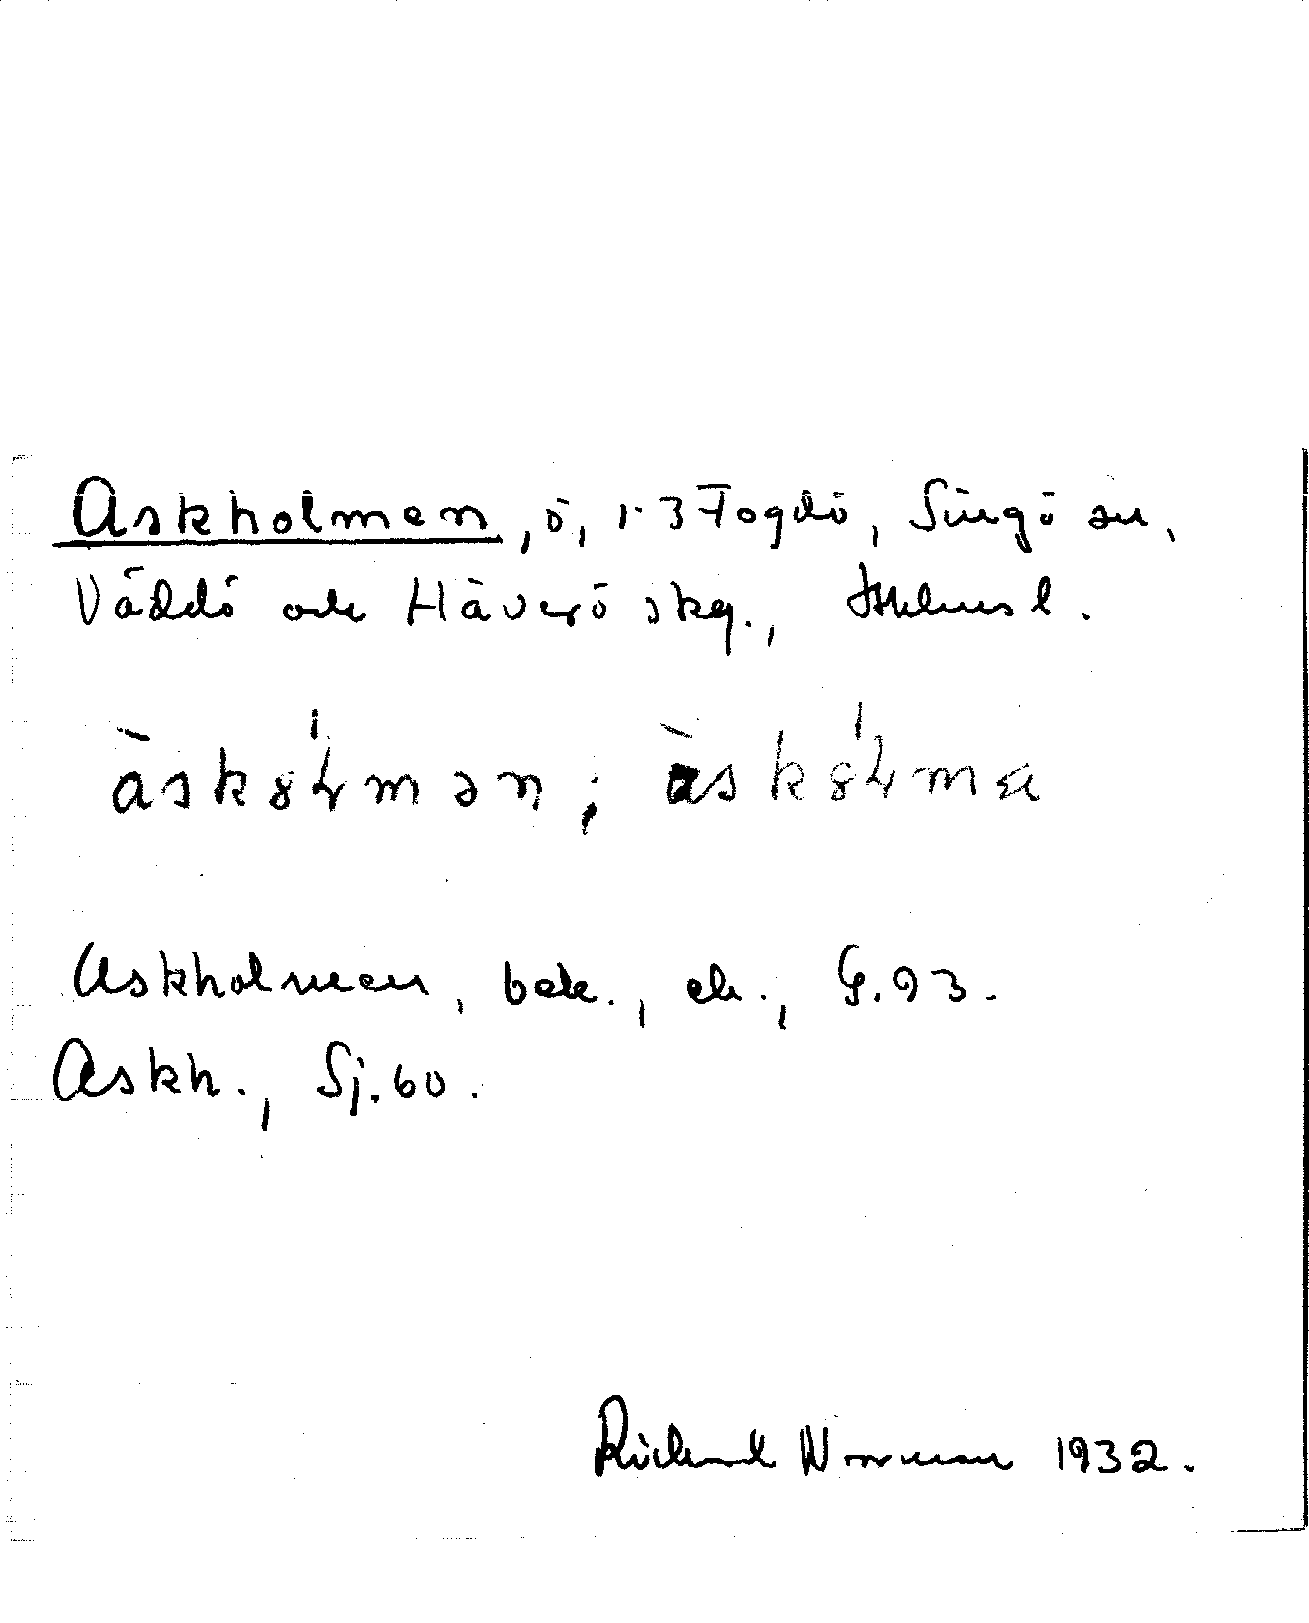 Askholmen, ö, 1-3 Fogdö, Singö sn,
Väddö och Häverö skg., Sthlms l.
àskó̵ɫmən; àskó̵ɫma
Askholmen, bek., ek., G. 93.
Askh., Sj. 60.
Richard Norrman 1932.